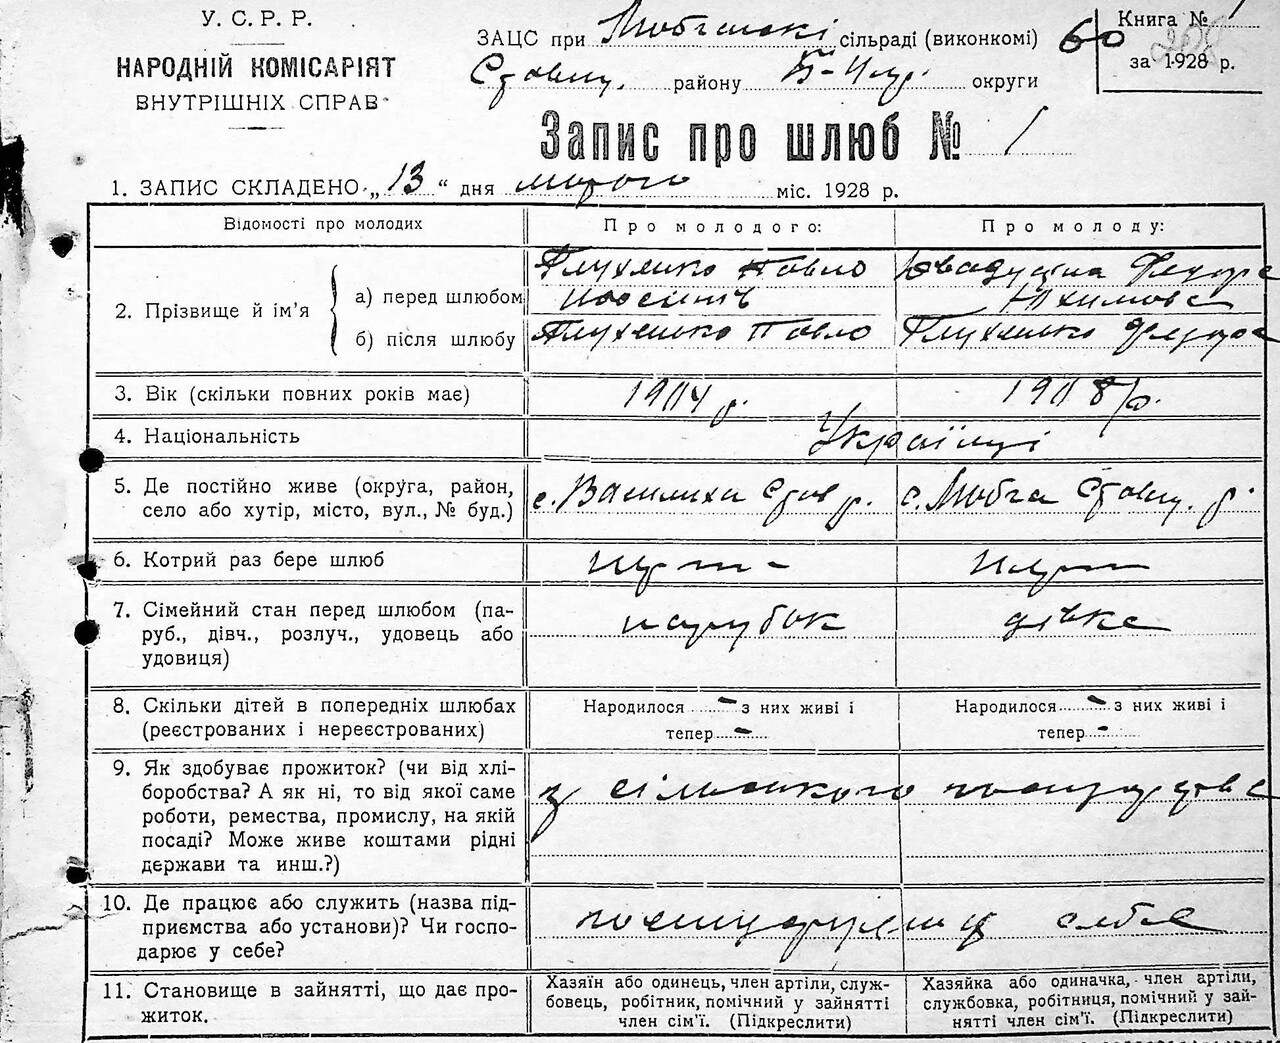 У. С. Р. Р.
НАРОДНІЙ КОМІСАРІЯТ
ВНУТРІШНІХ СПРАВ
ЗАЦС при сільраді (виконкомі) 60
району Б-Цер. округи
Книга № 1
за 1928 р.
Запис про шлюб № 1
1. ЗАПИС СКЛАДЕНО „13“ дня міс. 1928 р.
Відомості про молодих
Про молодого:
Про молоду:
2. Прізвище й ім’я
а) перед шлюбом
Глухенко Павло
Федора
Юхимовна
б) після шлюбу
Глухенко Павло
Глухенко Федора
3. Вік (скільки повних років має)
1904 р.
1908 р.
4. Національність
Українці
5. Де постійно живе (округа, район,
село або хутір, місто, вул., № буд.)
с. Василиха Став р.
6. Котрий раз бере шлюб
7. Сімейний стан перед шлюбом (па-
руб., дівч., розлуч., удовець або
удовиця)
парубок
дівка
8. Скільки дітей в попередніх шлюбах
(реєстрованих і нереєстрованих)
Народилося - з них живі і
тепер -
Народилося - з них живі і
тепер -
9. Як здобуває прожиток? (чи від хлі-
боробства? А як ні, то від якої саме
роботи, ремества, промислу, на якій
посаді? Може живе коштами рідні
держави та инш.?)
з сільського господарства
10. Де працює або служить (назва під-
приємства або установи)? Чи госпо-
дарює у себе?
себе
11. Становище в зайнятті, що дає про-
житок.
Хазяїн або одинець, член артіли, служ-
бовець, робітник, помічний у зайнятті
член сім’ї. (Підкреслити)
Хазяйка або одиначка, член артіли,
службовка, робітниця, помічний у зай-
нятті член сім’ї. (Підкреслити)